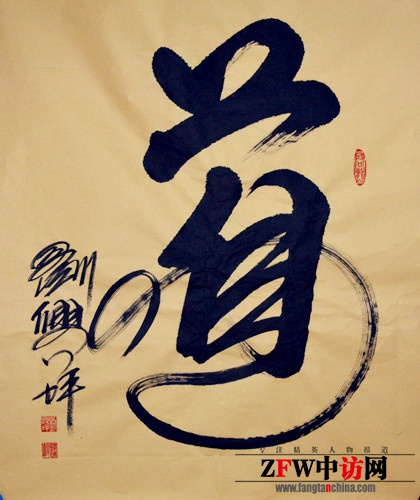 道
劉
专注精英人物报道
ZFW中访网
www.fangtanchina.com